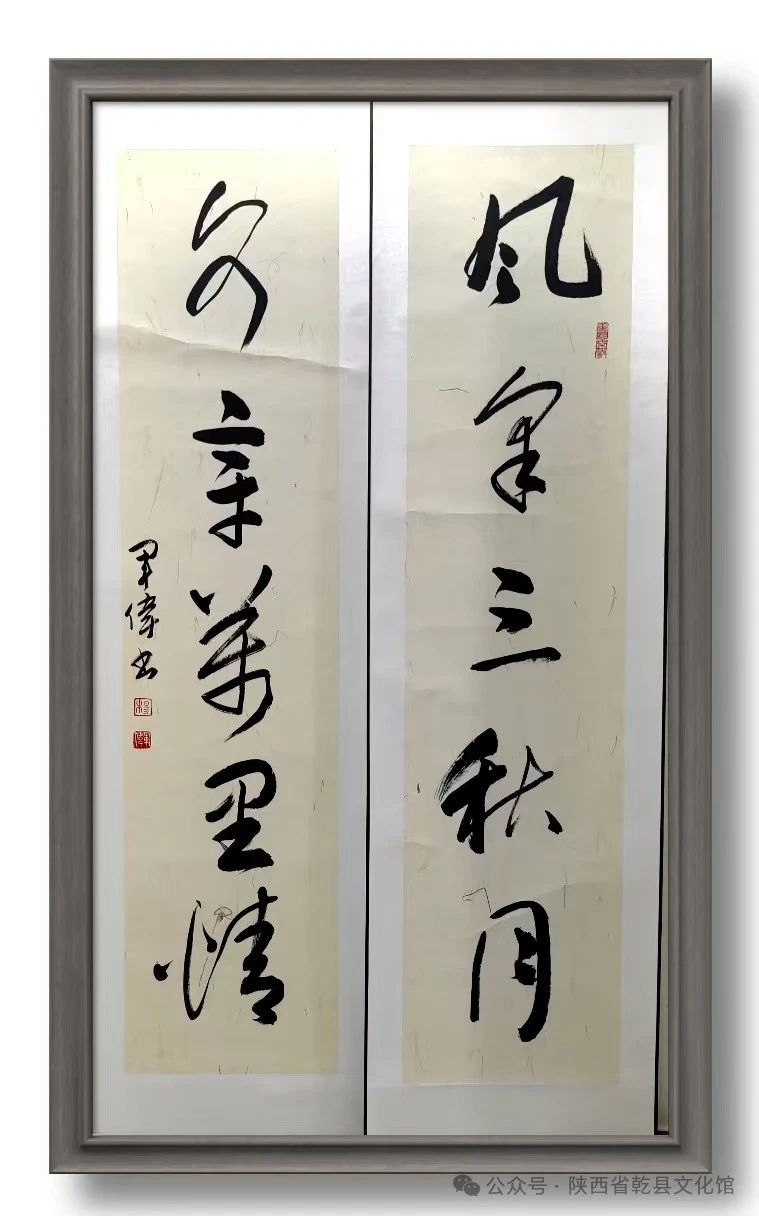 风三秋月
章萬里情
军偉书
公众号·陕西省乾县文化馆